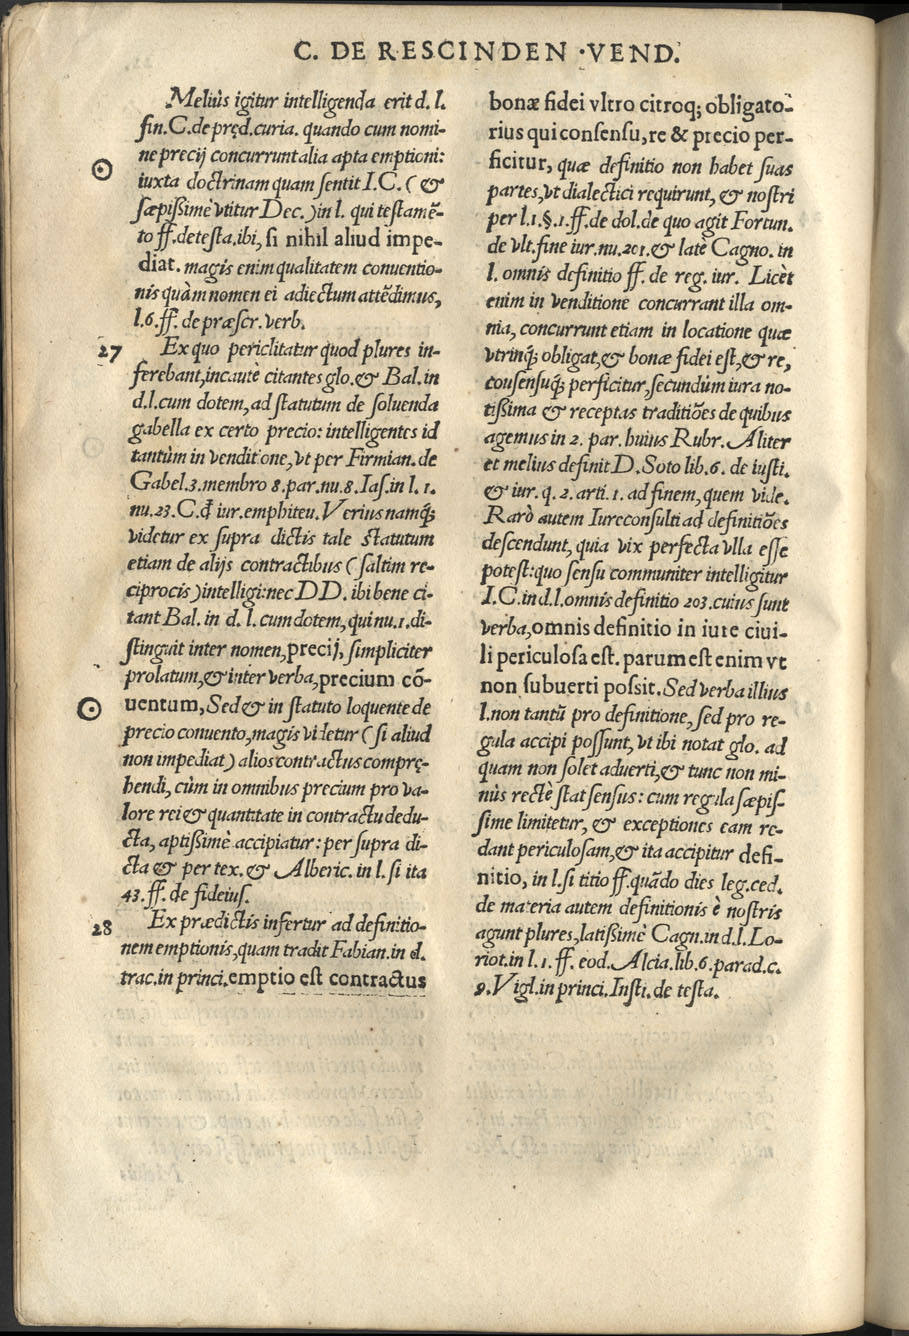 C. DE RESCINDEN . VEND.
Meliùs igitur intelligenda erit d. l.
fin. C. de pręd. curia. quando cum nomi-
ne precij concurrunt alia apta emptioni:
iuxta doctrinam quam sentit I. C. ( &
sæpissimè vtitur Dec. ) in l. qui testamē-
to ff. de testa. ibi, si nihil aliud impe-
diat. magis enim qualitatem conuentio-
nis quàm nomen ei adiectum attēdimus,
l. 6. ff. de præscr. verb.
27 Ex quo periclitatur quod plures in-
ferebant, incautè citantes glo. & Bal. in
d. l. cum dotem, ad statutum de soluenda
gabella ex certo precio: intelligentes id
tantùm in venditione, vt per Firmian. de
Gabel. 3. membro 8. par. nu. 8. Ias. in l. 1.
nu. 23. C. đ iur. emphiteu. Verius namq;
videtur ex supra dictis tale statutum
etiam de alijs contractibus ( saltim re-
ciprocis ) intelligi: nec DD. ibi bene ci-
tant Bal. in d. l. cum dotem, qui nu. 1. di-
stinguit inter nomen, precij, simpliciter
prolatum, & inter verba, precium cō-
uentum, Sed & in statuto loquente de
precio conuento, magis videtur ( si aliud
non impediat ) alios contractus compręhendi, cùm in omnibus precium pro va-
lore rei & quantitate in contractu dedu-
cta, aptissimè accipiatur: per supra di-
cta & per tex. & Alberic. in l. si ita
43. ff. de fideius.
28 Ex prædictis infertur ad definitio-
nem emptionis, quam tradit Fabian. in d.
trac. in princi. emptio est contractus
bonæ fidei vltro citroq; obligato-
rius qui consensu, re & precio per-
ficitur, quæ definitio non habet suas
partes, vt dialectici requirunt, & nostri
per l. 1. §. 1. ff. de dol. de quo agit Fortun.
de vlt. fine iur. nu. 201. & latè Cagno. in
l. omnis definitio ff. de reg. iur. Licèt
enim in venditione concurrant illa om-
nia, concurrunt etiam in locatione quæ
vtrinq; obligat, & bonæ fidei est, & re,
consensuq; perficitur, secundùm iura no-
tissima & receptas traditiōes de quibus
agemus in 2. par. huius Rubr. Aliter
et melius definit D. Soto lib. 6. de iusti.
& iur. q. 2. arti. 1. ad finem, quem vide.
Rarò autem Iureconsulti ad definitiōes
descendunt, quia vix perfecta vlla esse
potest: quo sensu communiter intelligitur
I. C. in d. l. omnis definitio 203. cuius sunt
verba, omnis definitio in iure ciui-
li periculosa est. parum est enim vt
non subuerti possit. Sed verba illius
l. non tantū pro definitione, sed pro re-
gula accipi possunt, vt ibi notat glo. ad
quam non solet aduerti, & tunc non mi-
nùs rectè stat sensus: cum regula sæpis-
sime limitetur, & exceptiones eam re-
dant periculosam, & ita accipitur defi-
nitio, in l. si titio ff. quādo dies leg. ced.
de materia autem definitionis è nostris
agunt plures, latissimè Cagn. in d. l. Lo-
riot. in l. 1. ff. eod. Alcia. lib. 6. parad. c.
9. Vigl. in princi. Insti. de testa.